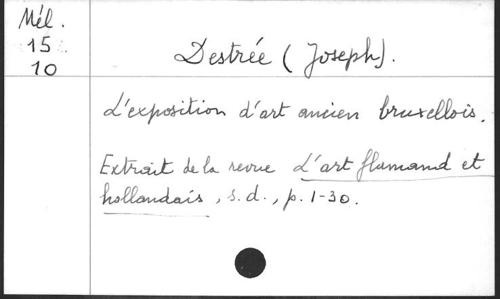 Mél.
15
10
Destrée (Joseph).
L'exposition d'art ancien bruxellois.
Extrait de la revue L'art flamand et
hollandais, s.d., p. 1-30.